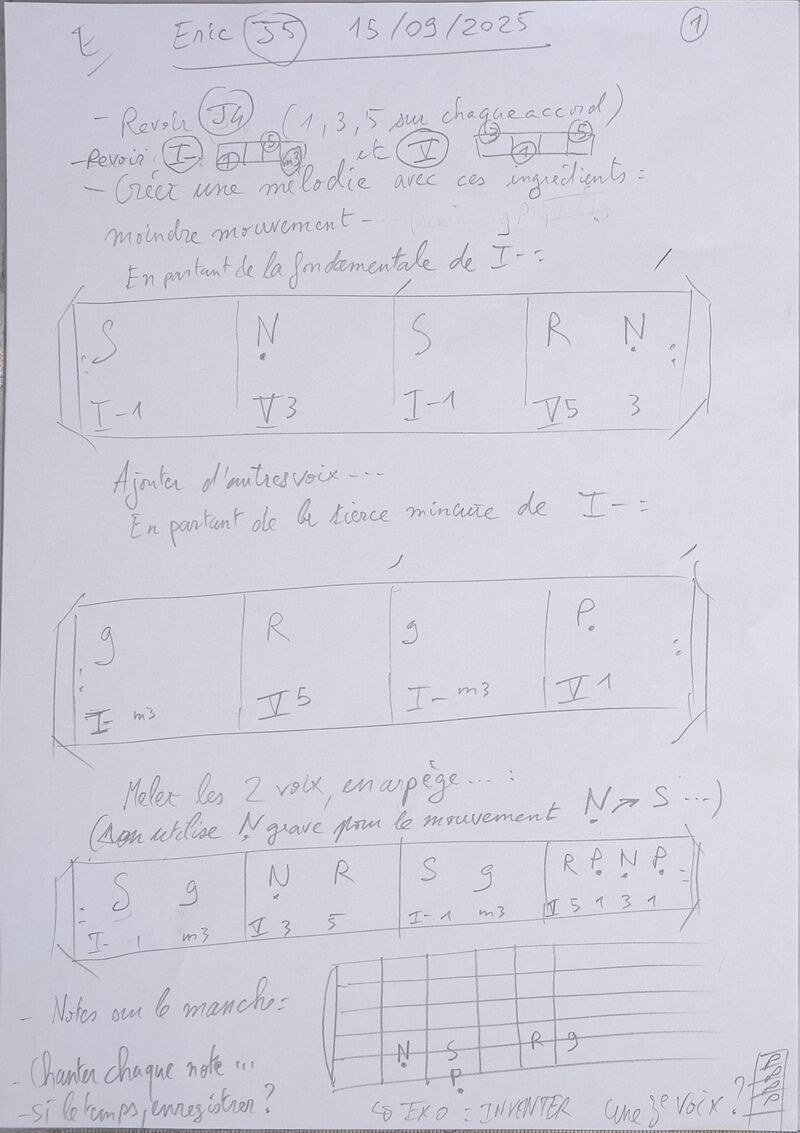 Eric J5 15/09/2025 1
- Revoir J4 (1, 3, 5 sur chaque accord)
- Revoir I- 1 5 m3 et V 3 1 5
- Créer une mélodie avec ces ingrédients :
moindre mouvement -
En partant de la fondamentale de I- :
S N S R N
I-1 V3 I-1 V5 3
Ajouter d'autres voix ...
En partant de la tierce mineure de I- :
g R g P
I- m3 V5 I- m3 V1
Meler les 2 voix, en arpège ... :
(on utilise N grave pour le mouvement N → S ...)
S g N R S g R P N P
I- 1 m3 V 3 5 I-1 m3 V 5 1 3 1
- Notes sur le manche :
N S R g
P
- Chanter chaque note ...
- si le temps, enregistrer ?
EXO : INVENTER une 3e voix ?